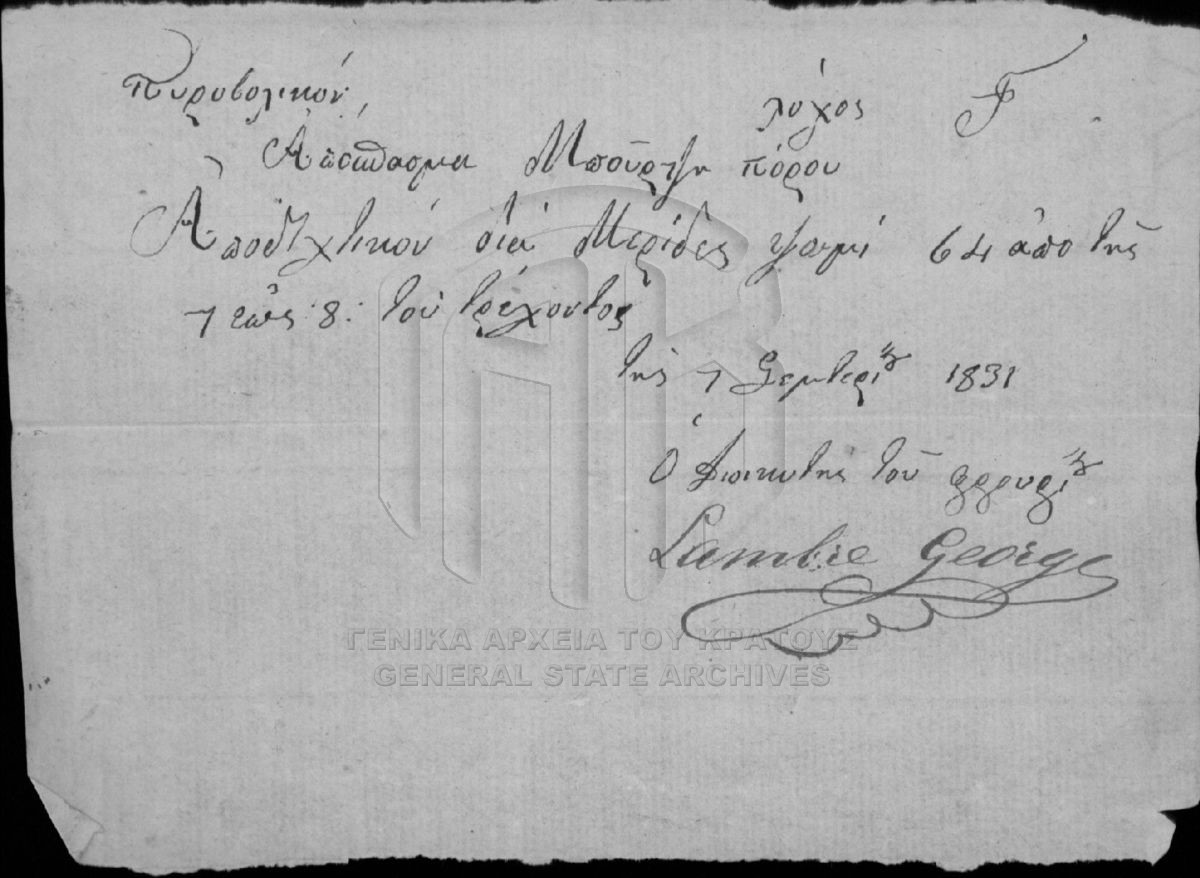 Πυροβολικόν, λόχος Γ
Ἀπόσπασμα Μπούρτζη πόρου
Ἀποδικτικόν διά Μερίδες ψωμί 64 ἀπο τῆς
7 εως 8: τοῦ τρέχοντος
τῆς 7 Σεμτερίȣ 1831
Ὁ Διικητής τοῦ φρουρίȣ
Lambre George
ΓΕΝΙΚΑ ΑΡΧΕΙΑ ΤΟΥ ΚΡΑΤΟΥΣ
GENERAL STATE ARCHIVES